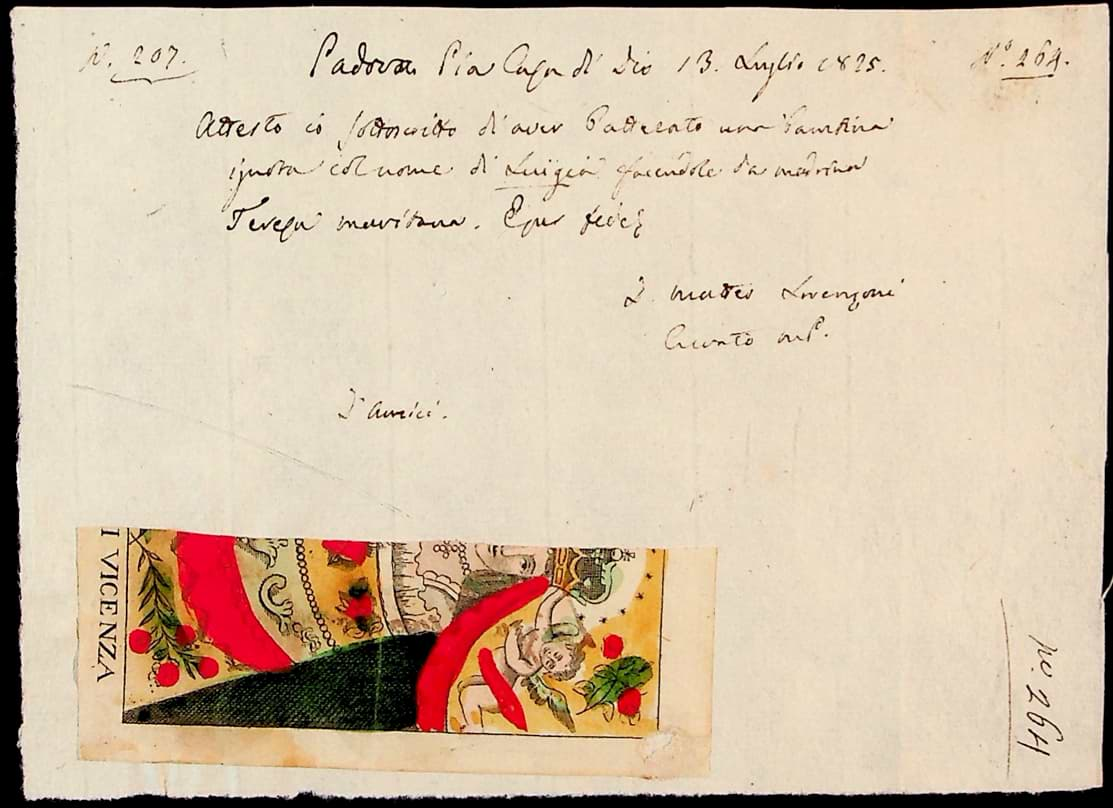 N. 207. Padova Pia Casa di Dio 13. Luglio 1825. N.º 264.
Attesto io sottoscritto di aver battezzato una bambina
ignota col nome di Luigia facendole da madrina
Teresa maritana. E per fede
D. Matteo Lorenzoni
Curato mp.
D'Amici.
I VICENZA
N. 264